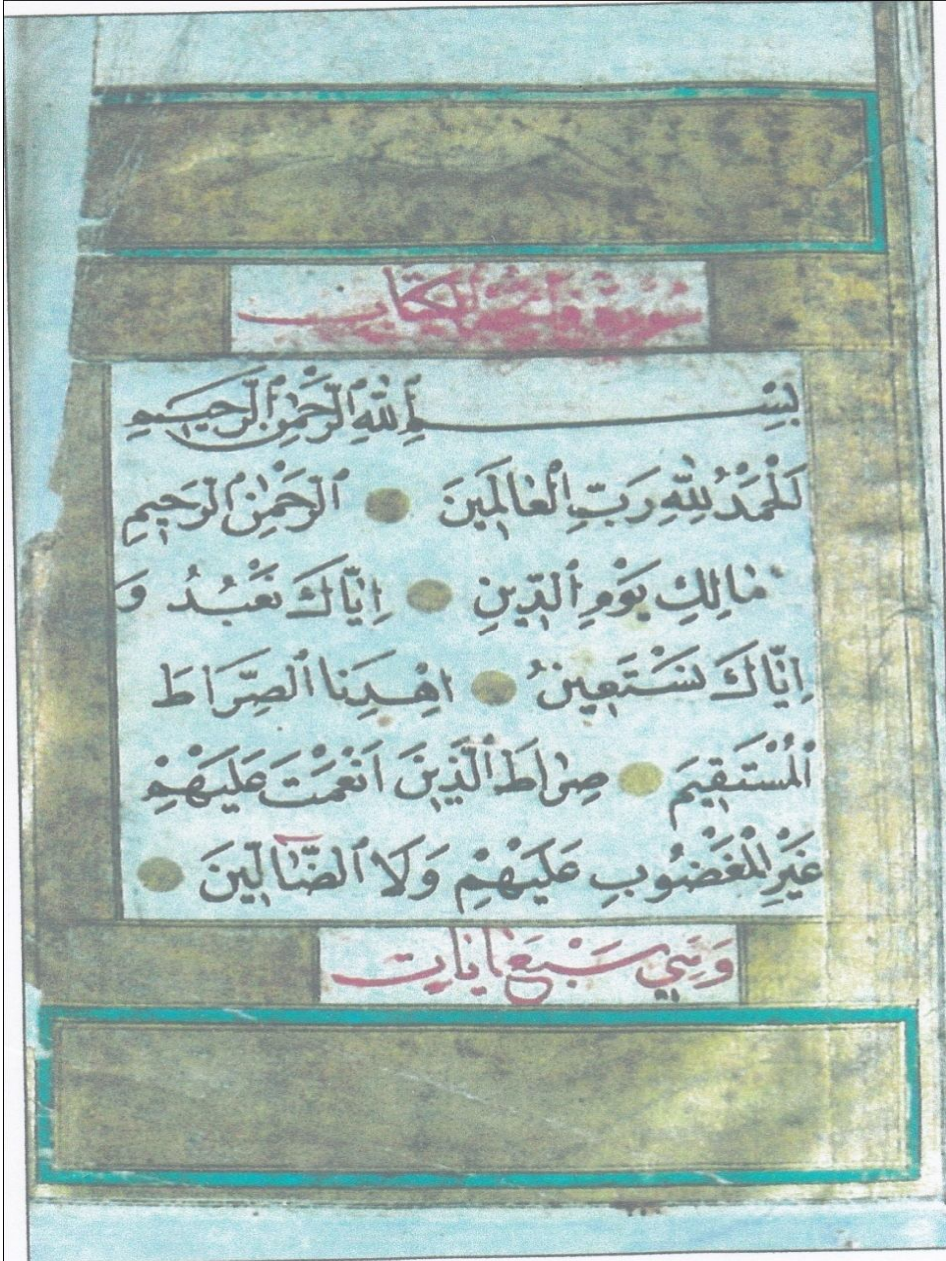 سورة فاتحة الكتاب
بِسْمِ ٱللّٰهِ ٱلرَّحْمٰنِ ٱلرَّحِيمِ
اَلْحَمْدُ لِلّٰهِ رَبِّ ٱلْعَالَمِينَ ٱلرَّحْمٰنِ ٱلرَّحِيمِ
مَالِكِ يَوْمِ ٱلدِّينِ اِيَّاكَ نَعْبُدُ وَ
اِيَّاكَ نَسْتَعِينُ اهْدِنَا ٱلصِّرَاطَ
ٱلْمُسْتَقِيمَ صِرَاطَ ٱلَّذِينَ اَنْعَمْتَ عَلَيْهِمْ
غَيْرِ ٱلْمَغْضُوبِ عَلَيْهِمْ وَلَا ٱلضَّآلِّينَ
وَهِيَ سَبْعَ اٰيَات